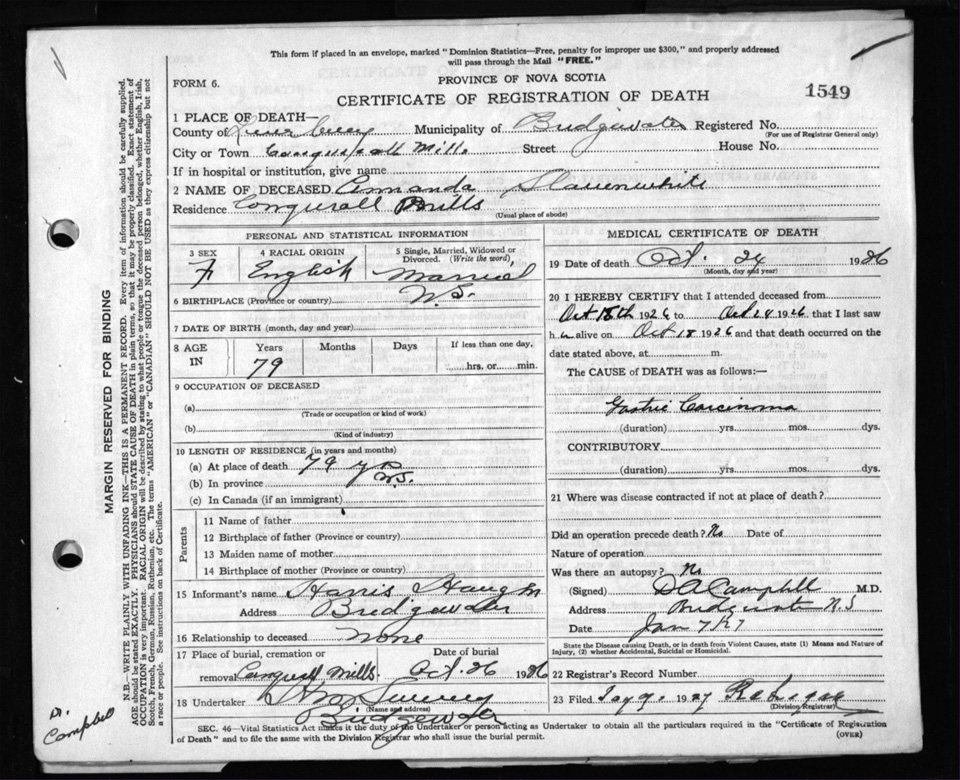 This form if placed in an envelope, marked "Dominion Statistics—Free, penalty for improper use $300," and properly addressed
will pass through the Mail "FREE."
FORM 6.
PROVINCE OF NOVA SCOTIA
CERTIFICATE OF REGISTRATION OF DEATH
1549
1 PLACE OF DEATH—
County of Lunenburg Municipality of Bridgewater Registered No.
(For use of Registrar General only)
City or Town Conquerall Mills Street House No.
If in hospital or institution, give name
2 NAME OF DECEASED Amanda Slauenwhite
Residence Conquerall Mills
(Usual place of abode)
PERSONAL AND STATISTICAL INFORMATION
3 SEX
F
4 RACIAL ORIGIN
English
5 Single, Married, Widowed or
Divorced. (Write the word)
Married
6 BIRTHPLACE (Province or country) N.S.
7 DATE OF BIRTH (month, day and year)
8 AGE
IN
Years
79
Months
Days
If less than one day,
hrs. or min.
9 OCCUPATION OF DECEASED
(a)
(Trade or occupation or kind of work)
(b)
(Kind of industry)
10 LENGTH OF RESIDENCE (in years and months)
(a) At place of death 79 yrs
(b) In province N.S.
(c) In Canada (if an immigrant)
Parents
11 Name of father
12 Birthplace of father (Province or country)
13 Maiden name of mother
14 Birthplace of mother (Province or country)
15 Informant's name Harris
Address Bridgewater
16 Relationship to deceased none
17 Place of burial, cremation or
removal Conquerall Mills
Date of burial
Oct. 26 1926
18 Undertaker
(Name and address)
Bridgewater
MEDICAL CERTIFICATE OF DEATH
19 Date of death Oct. 24 1926
(Month, day and year)
20 I HEREBY CERTIFY that I attended deceased from
Oct 18th 1926 to Oct 24 1926 that I last saw
h er alive on Oct 18 1926 and that death occurred on the
date stated above, at m.
The CAUSE of DEATH was as follows:—
Gastric Carcinoma
(duration) yrs. mos. dys.
CONTRIBUTORY
(duration) yrs. mos. dys.
21 Where was disease contracted if not at place of death?
Did an operation precede death? No Date of
Nature of operation
Was there an autopsy? No
(Signed) D A Campbell M.D.
Address Bridgewater N.S
Date Jan 7
State the Disease causing Death, or in death from Violent Causes, state (1) Means and Nature of
Injury, (2) whether Accidental, Suicidal or Homicidal.
22 Registrar's Record Number
23 Filed 1927
(Division Registrar)
SEC. 46—Vital Statistics Act makes it the duty of the Undertaker or person acting as Undertaker to obtain all the particulars required in the "Certificate of Registration
of Death" and to file the same with the Division Registrar who shall issue the burial permit.
(OVER)
MARGIN RESERVED FOR BINDING
N.B.—WRITE PLAINLY WITH UNFADING INK—THIS IS A PERMANENT RECORD. Every item of information should be carefully supplied.
AGE should be stated EXACTLY. PHYSICIANS should STATE CAUSE OF DEATH in plain terms, so that it may be properly classified. Exact statement of
OCCUPATION is very important. RACIAL ORIGIN will be described by stating to what people or tongue the deceased person belonged, whether English, Irish,
Scotch, French, German, Russian, Ruthenian, etc. The terms "AMERICAN" or "CANADIAN" SHOULD NOT BE USED as they express citizenship but not
a race or people. See instructions on back of Certificate.
Dr.
Campbell